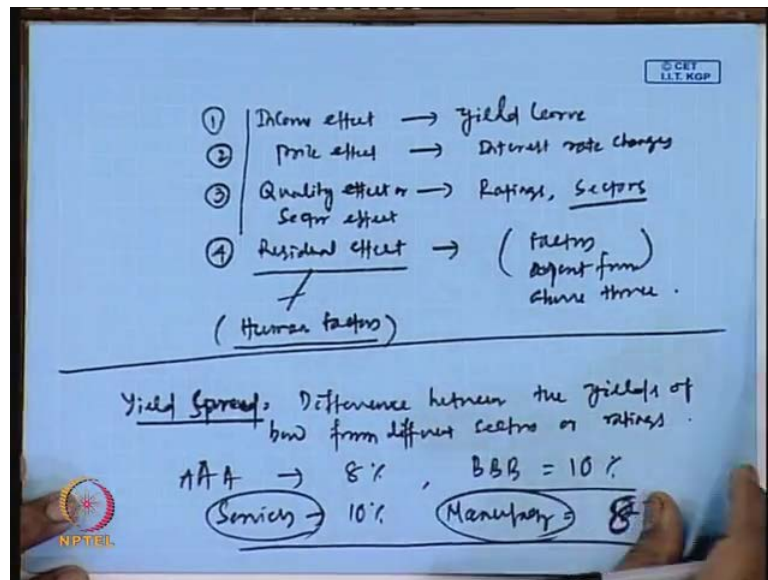 © CET
I.I.T. KGP
① Income effect → Yield Curve
② Price effect → Interest rate changes
③ Quality effect or → Ratings, Sectors
Sector effect
④ Residual effect → ( Factors
apart from
above three. )
( Human factors )
Yield Spread: Difference between the yields of
bond from different sectors or ratings.
AAA → 8%, BBB = 10%
Services → 10% = 8
NPTEL